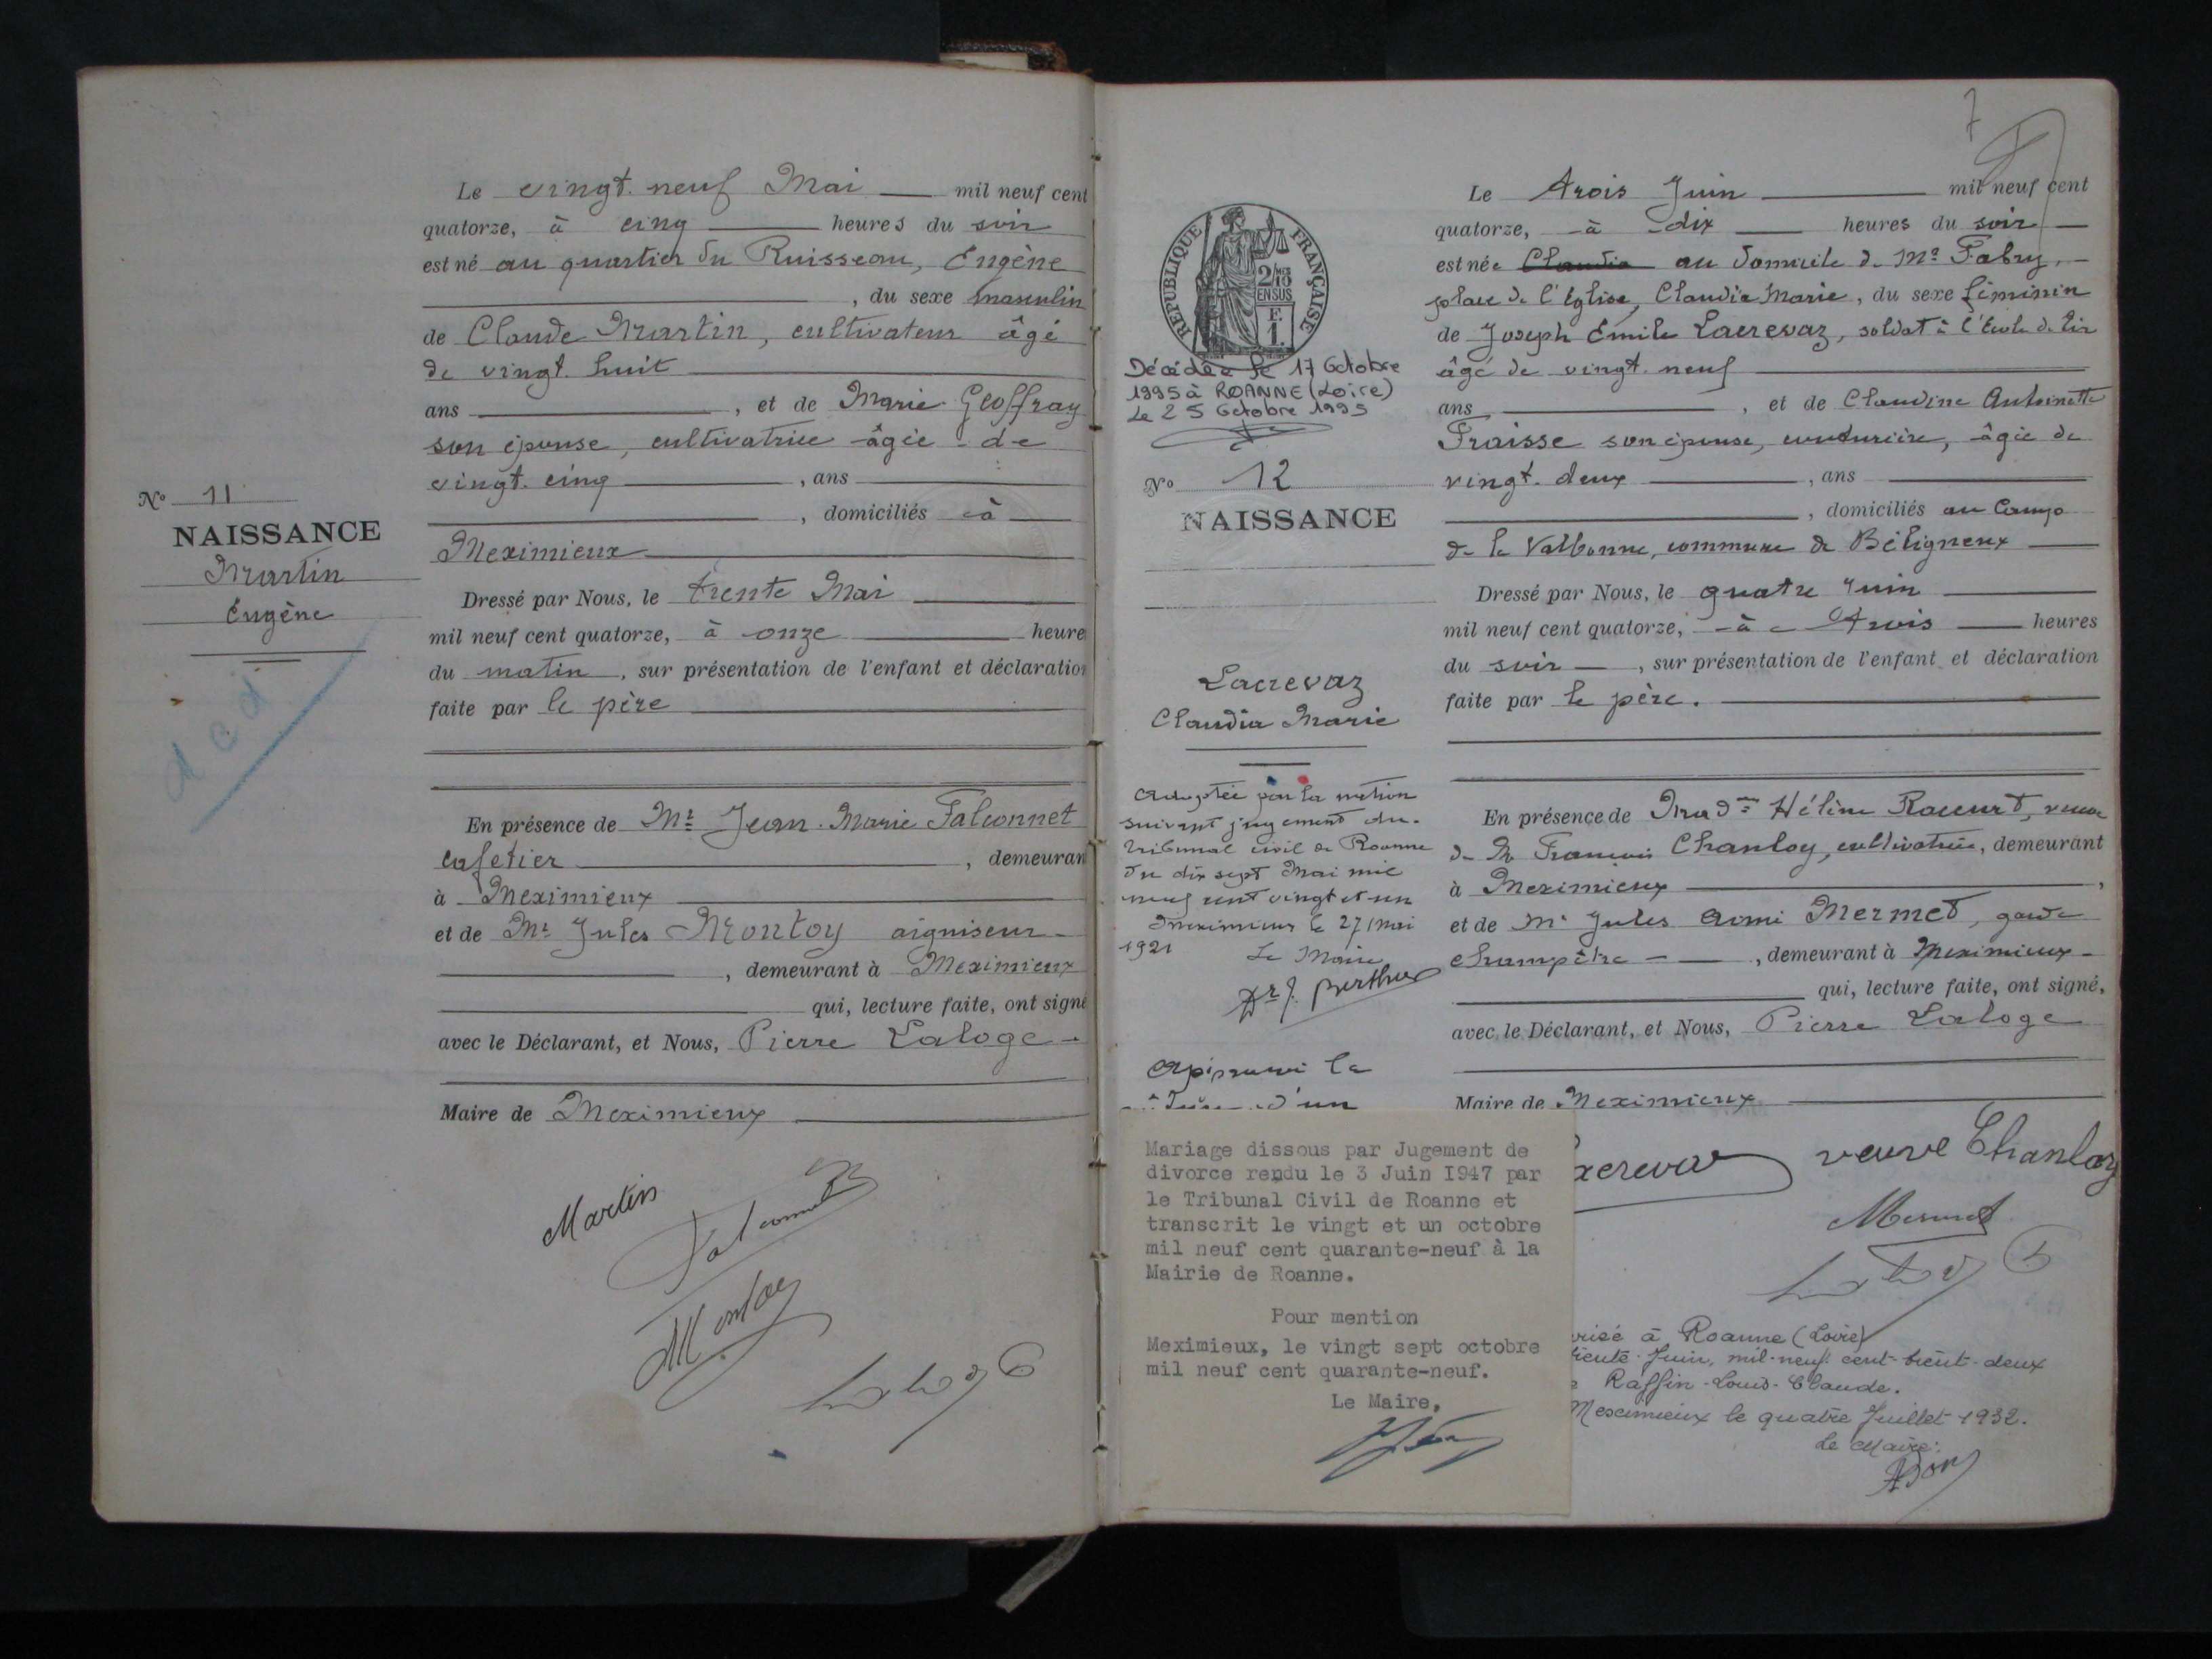 Le vingt neuf Mai mil neuf cent
quatorze, à cinq heures du soir
est né au quartier du Ruisseau, Eugène
, du sexe masculin
de Claude Martin, cultivateur âgé
de vingt huit
ans , et de Marie Geoffray
son épouse, cultivatrice âgée de
vingt cinq , ans
, domiciliés à
Meximieux
Dressé par Nous, le trente Mai
mil neuf cent quatorze, à onze heure
du matin , sur présentation de l'enfant et déclaration
faite par le père
En présence de Mr Jean Marie Falconnet
cafetier , demeuran
à Meximieux
et de Mr Jules Montoy aiguiseur
, demeurant à Meximieux
qui, lecture faite, ont signé
avec le Déclarant, et Nous, Pierre Laloge
Maire de Meximieux
No 11
NAISSANCE
Martin
Eugène
Martin
Falconnet
Montoy
7
RÉPUBLIQUE FRANÇAISE
2/10
EN SUS
F.
1.
Décédée le 17 Octobre
1995 à ROANNE (Loire)
Le 25 Octobre 1995
No 12
NAISSANCE
Lacrevaz
Claudia Marie
Adoptée par la nation
suivant jugement du
tribunal civil de Roanne
du dix sept Mai mil
neuf cent vingt et un
Meximieux le 27 mai
1921
Le Maire
Dr J. Berthier
Le trois Juin mil neuf cent
quatorze, à dix heures du soir
est née Claudia au domicile de Me Fabry,
place de l'Eglise, Claudia Marie, du sexe féminin
de Joseph Emile Lacrevaz, soldat à l'Ecole de tir
âgé de vingt neuf
ans , et de Claudine Antoinette
Fraisse son épouse, couturière, âgée de
vingt deux , ans
, domiciliés au Camp
de la Valbonne, commune de Béligneux
Dressé par Nous, le quatre Juin
mil neuf cent quatorze, à trois heures
du soir , sur présentation de l'enfant et déclaration
faite par le père.
En présence de Mad me Hélène , veuve
de Mr François Chanloy, cultivatrice, demeurant
à Meximieux ,
et de Mr Jules Aimé Mermet, garde
champêtre , demeurant à Meximieux
qui, lecture faite, ont signé,
avec le Déclarant, et Nous, Pierre Laloge
Maire de Meximieux
veuve Chanloy
Mermet
Mariage dissous par Jugement de
divorce rendu le 3 Juin I947 par
le Tribunal Civil de Roanne et
transcrit le vingt et un octobre
mil neuf cent quarante-neuf à la
Mairie de Roanne.
Pour mention
Meximieux, le vingt sept octobre
mil neuf cent quarante-neuf.
Le Maire,
à Roanne (Loire)
trente Juin, mil-neuf cent-trent-deux
Raffin-Louis-Claude.
Meximieux le quatre Juillet 1932.
Le Maire: